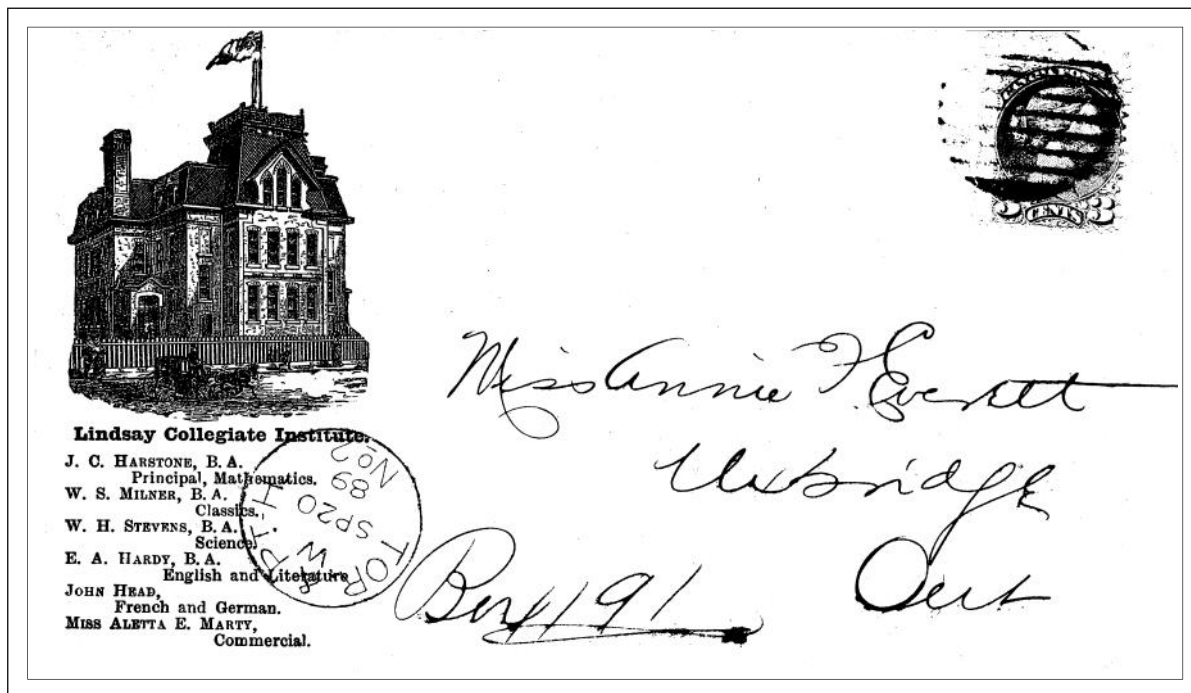 Lindsay Collegiate Institute.
J. C. HARSTONE, B. A.
Principal, Mathematics.
W. S. MILNER, B. A.
Classics.
W. H. STEVENS, B. A.
Science.
E. A. HARDY, B. A.
English and Literature
JOHN HEAD,
French and German.
MISS ALETTA E. MARTY,
Commercial.
TOR & PT
W
SP20
89
No2
3 CENTS 3
Miss Annie F. Everett
Uxbridge
Box 191 Ont